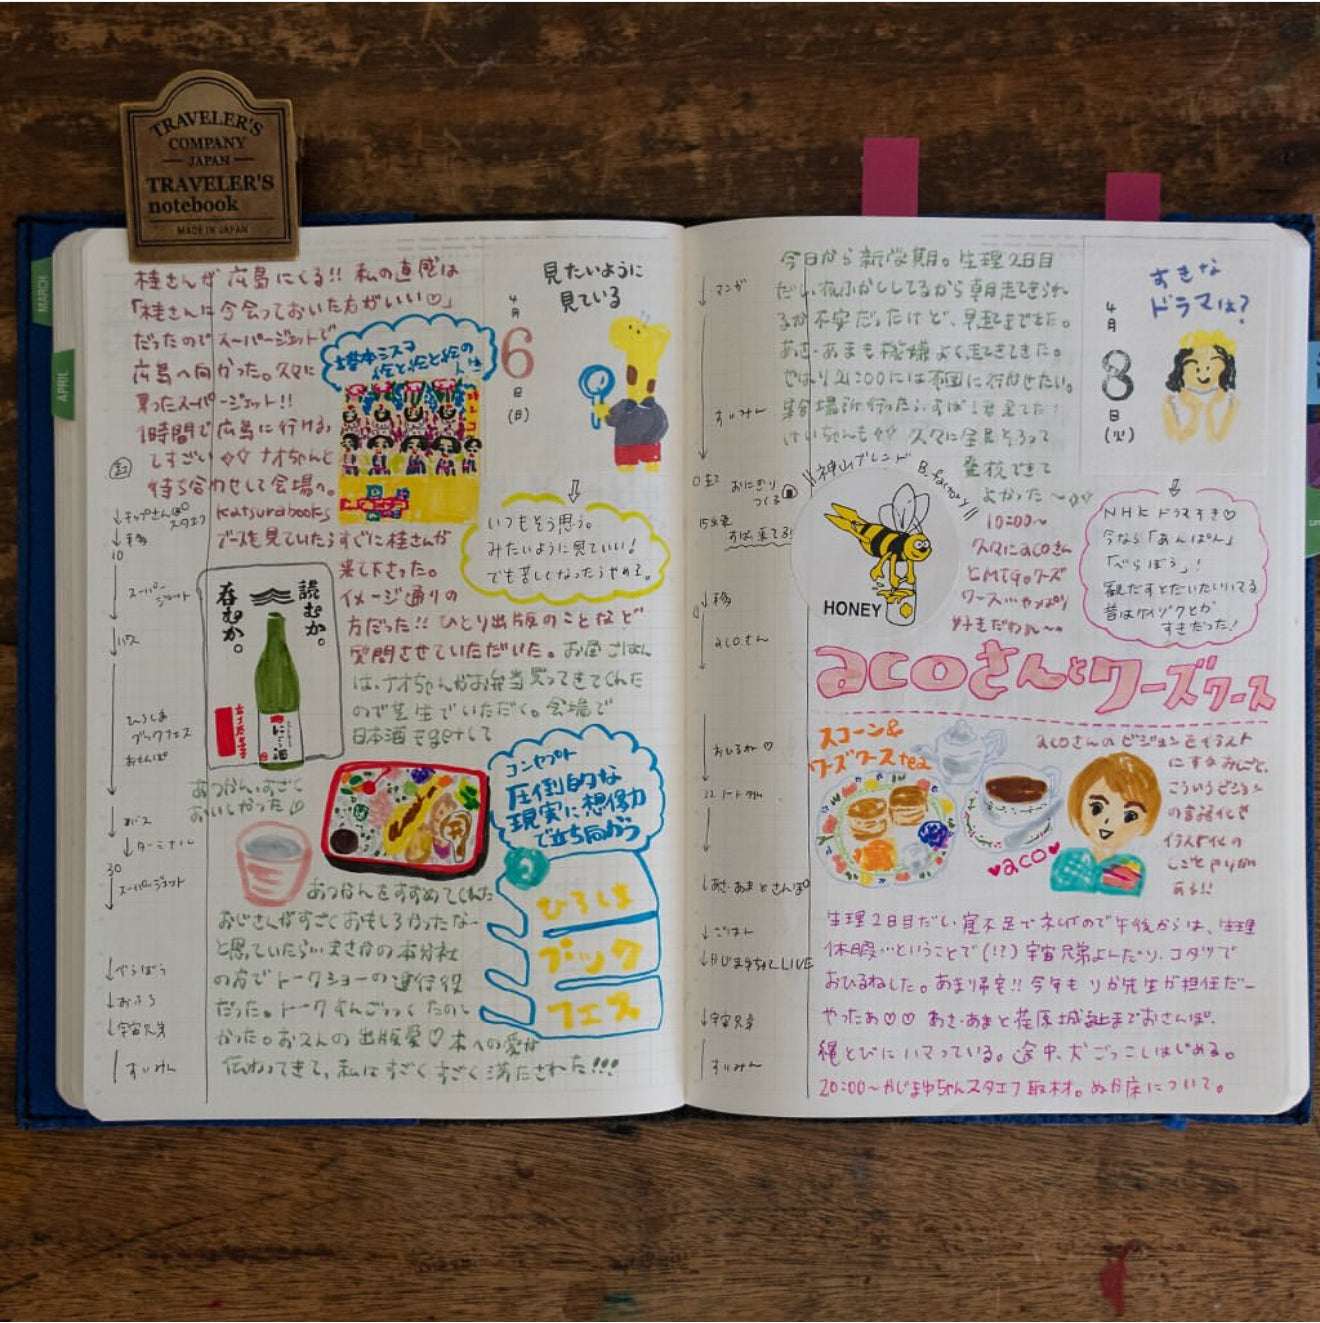 TRAVELER'S
COMPANY
JAPAN
TRAVELER'S
notebook
MADE IN JAPAN
MARCH
APRIL
桂さんが広島にくる!! 私の直感は
「桂さんに今会っておいた方がいい♡」
だったのでスーパージェットで
広島へ向かった。久々に
乗ったスーパージェット!!
1時間で広島に行ける
てすごい ナオちゃんと
待ち合わせして会場へ。
katsurabooks
ブースを見ていたらすぐに桂さんが
来て下さった。
イメージ通りの
方だった!! ひとり出版のことなど
質問させていただいた。お昼ごはん
は、ナオちゃんがお弁当買ってきてくれた
ので芝生でいただく。会場で
日本酒もgetして
塔本シスコ
絵と絵と絵の
4月
6
日
(日)
見たいように
見ている
いつもそう思う。
みたいように見ていい!
でも苦しくなったらやめる。
読むか。
呑むか。
あつかん、すごく
おいしかった
コンセプト
圧倒的な
現実に想像力
で立ち向かう
ひろしま
ブック
フェス
あつかんをすすめてくれた
おじさんがすごくおもしろかったなー
と思っていたらまさかの本分社
の方でトークショーの進行役
だった。トークすんごっっくたのし
かった。お2人の出版愛♡本への愛が
伝わってきて、私はすごくすごく満たされた!!!
起
スタエフ
移
10
スーパー
ジェット
バス
ひろしま
ブックフェス
おさんぽ
バス
ターミナル
30
スーパージェット
べらぼう
おふろ
宇宙兄弟
すいみん
今日から新学期。生理2日目
だし夜ふかししてるから朝起きられ
るか不安だったけど、早起きできた。
あさ・あまも機嫌よく起きてきた。
やはり21:00には布団に行かせたい。
集合場所行ったら、すばる君来てた!
けいちゃんも 久々に全員そろって
登校できて
よかった〜
10:00〜
久々にacoさん
とMTG。ワーズ
ワース…やっぱり
好きだわ〜。
4月
8
日
(火)
すきな
ドラマは?
NHKドラマすき♡
今なら「あんぱん」
「べらぼう」!
観だすとだいたいいてる
昔はケイゾクとか
すきだった!
神山ブレンド B.factory
HONEY
acoさんとワーズワース
スコーン&
ワーズワースtea
♥aco♥
acoさんのビジョンをイラスト
にするみごと。
こういうビジョン
の言語化や
イラスト化の
しごと
ある!!
生理2日目だし、寝不足でネムイので午後からは、生理
休暇…ということで(!?)宇宙兄弟よんだり、コタツで
おひるねした。あまり帰宅!! 今年もりか先生が担任だー
やったあ♡♡ あさ・あまと荏原城趾までおさんぽ。
縄とびにハマっている。途中、犬ごっこしはじめる。
20:00〜かじまゆちゃんスタエフ取材。ぬか床について。
マンガ
すいみん
おにぎり
つくる
すばる来てる!
移
acoさん
おひるね♡
あさ・あまとさんぽ
ごはん
かじまゆちゃんLIVE
宇宙兄弟
すいみん